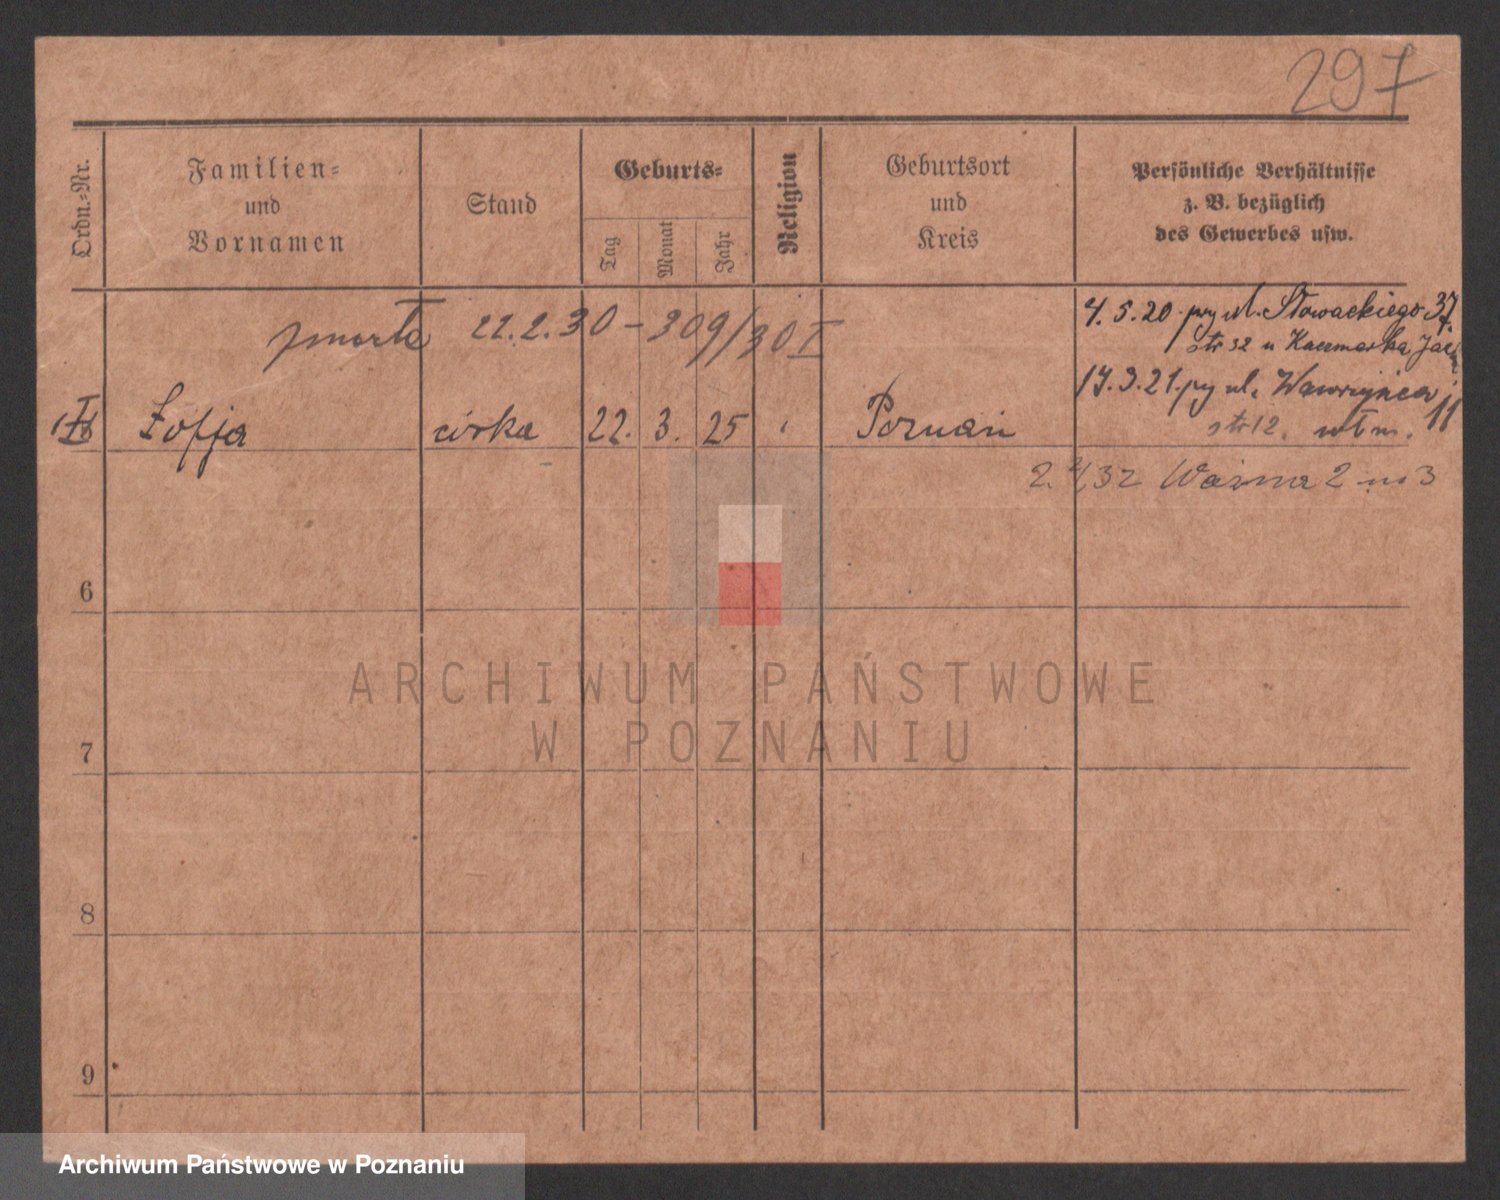 297
Ordn.-Nr.
Familien-
und
Vornamen
Stand
Geburts-
Tag
Monat
Jahr
Religion
Geburtsort
und
Kreis
Persönliche Verhältnisse
z. B. bezüglich
des Gewerbes usw.
zmarła 22.2.30 - 309/30 I
4. 5. 20 przy ul. Słowackiego 37.
str 32 u Kaczmarka
17. 9. 21. przy ul. Wawrzyńca 11
str 12.
Zofja córka 22. 3. 25 Poznań
2. 32 Ważna 2 m 3
6
7
8
9
ARCHIWUM PAŃSTWOWE
W POZNANIU
Archiwum Państwowe w Poznaniu